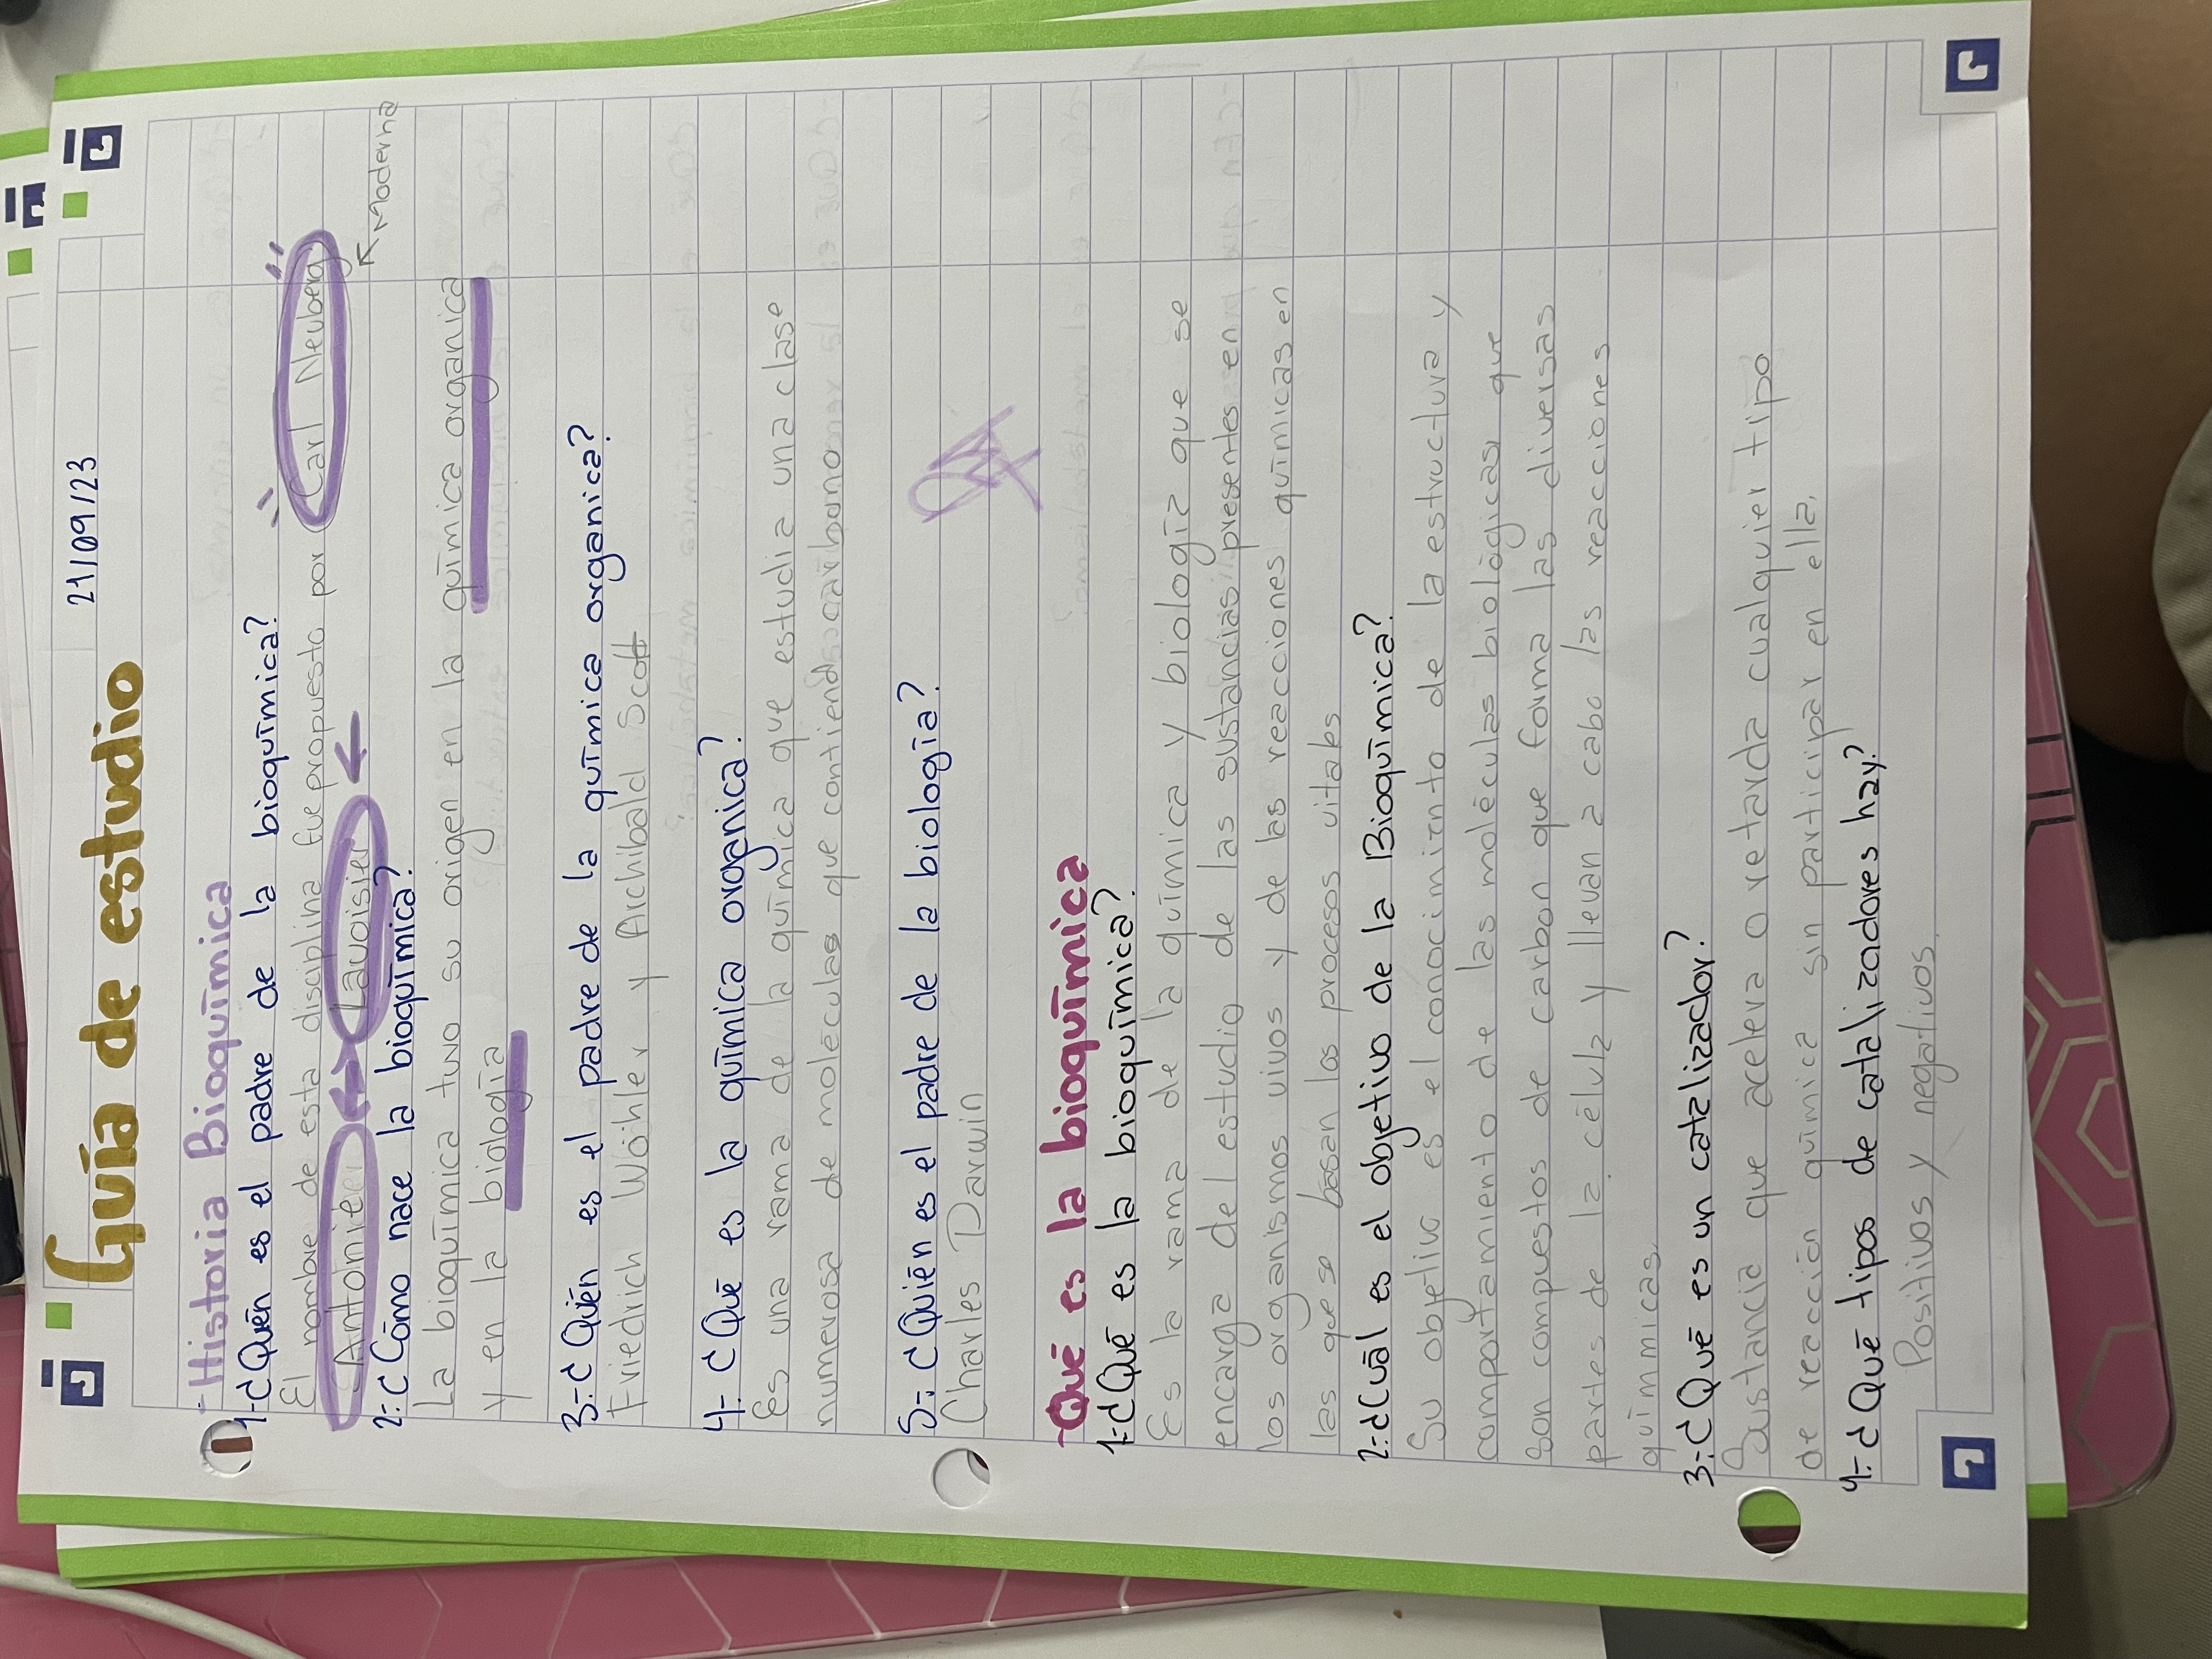 Guía de estudio
21/09/23
-Historia Bioquímica
1-¿Quén es el padre de la bioquímica?
El nombre de esta disciplina fue propuesto por "Carl Neuberg"
Antonie Lauoisier
Moderna
2-¿Cómo nace la bioquímica?
La bioquímica tuvo su origen en la química organica
y en la biología
3-¿Quén es el padre de la química organica?
Friedrich Wöhler y Archibald Scott
4-¿Qué es la química organica?
Es una rama de la química que estudia una clase
numerosa de moléculas que contiend carbono
5-¿Quién es el padre de la biología?
Charles Darwin
-Qué es la bioquímica
1-¿Qué es la bioquímica?
Es la rama de la química y biología que se
encarga del estudio de las sustancias presentes en
los organismos vivos y de las reacciones químicas en
las que se basan los procesos vitales
2-¿Cuál es el objetivo de la Bioquímica?
Su objetivo es el conocimiento de la estructura y
comportamiento de las moléculas biológicas, que
son compuestos de carbon que forma las diversas
partes de la célula y llevan a cabo las reacciones
químmicas.
3-¿Qué es un catalizador?
Sustancia que acelera o retarda cualquier tipo
de reacción química sin participar en ella.
4-¿Qué tipos de catalizadores hay?
Positivos y negativos.